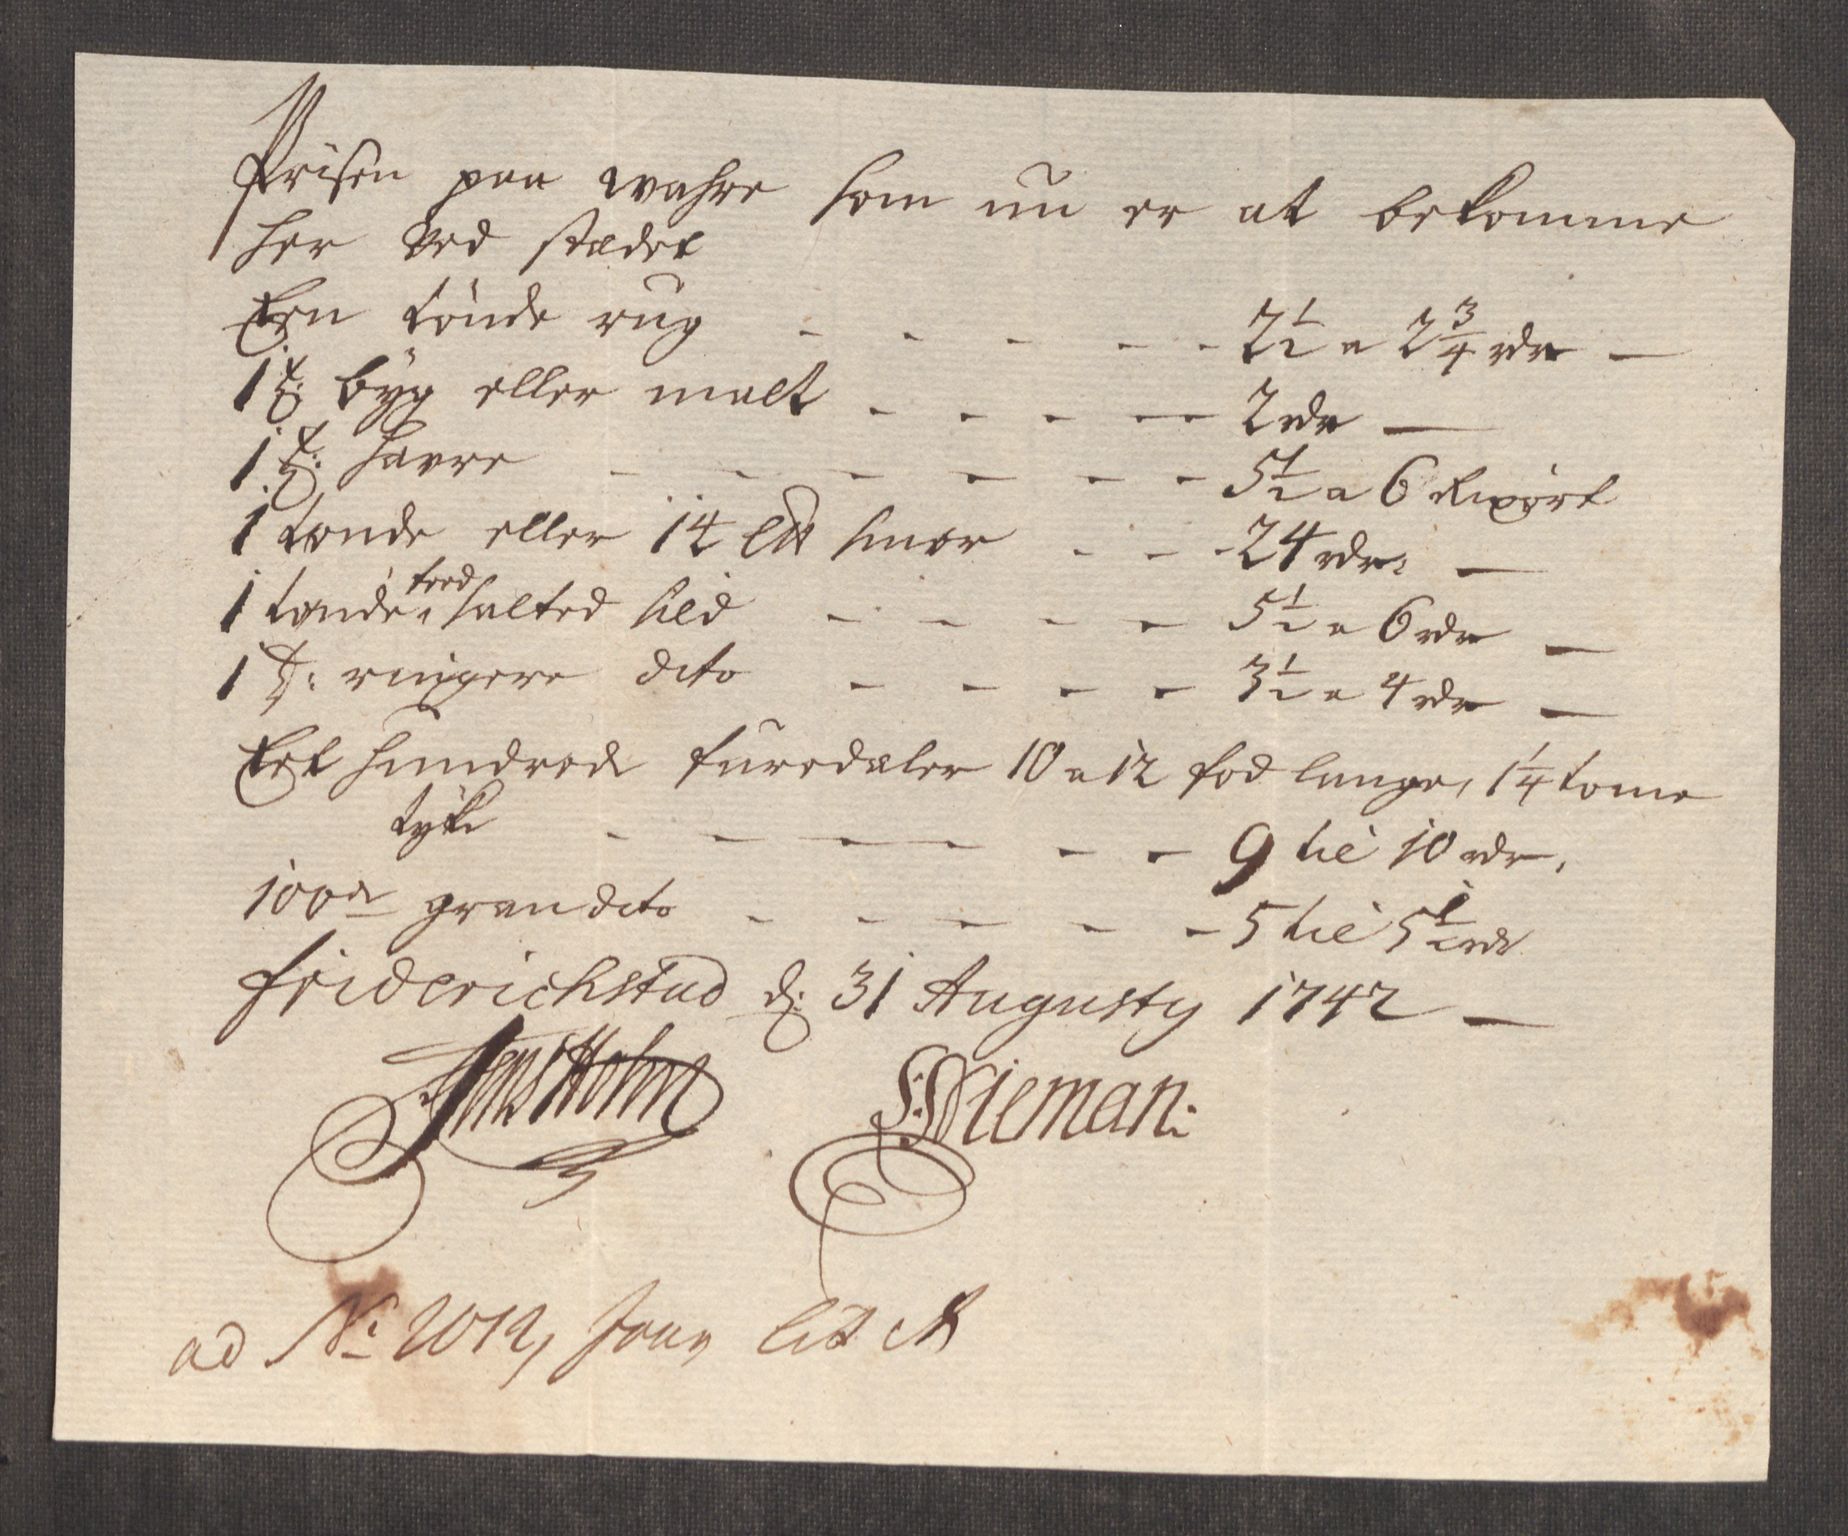 Prisen paa wahre som nu er at bekomme
her ved stædet
Een tönde rug - - - - - 2 1/2 a 2 3/4 rdr -
1 t: byg eller malt - - - - - 2 rdr -
1 t: havre - - - - - - 5 1/2 a 6 ort
1 tønde eller 14 smør - - - 24 rdr: -
1 tønde salted sild - - - - 5 1/2 a 6 rdr -
1 t: ringere dito - - - - 3 1/2 a 4 rdr -
Eet hundrede furedæler 10 a 12 fod lange, 1 1/4 tome
tyke - - - - - - 9 til 10 rdr.
100de gran dito - - - - - 5 til 5 1/2 rdr
friderichstad d: 31 Augusty 1742 -
Jens Holm S: Wieman:
ad No Lit A